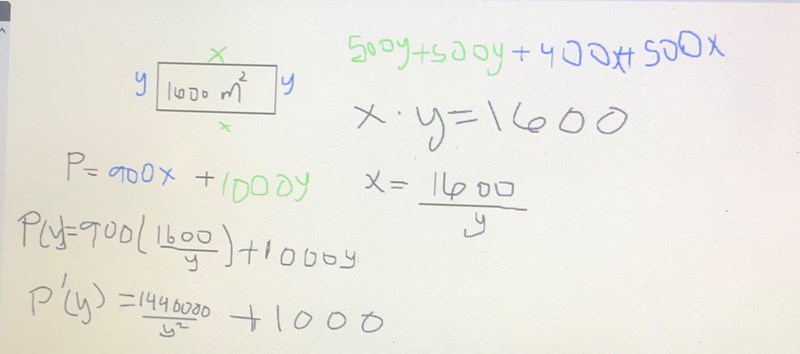 x
500y+500y+400x+500x
y 1600 m² y
x
x·y=1600
P=900x+1000y
x=1600/y
P(y)=900(1600/y)+1000y
P'(y)=1440000/y²+1000